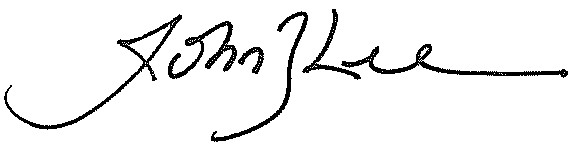 John Z Lee